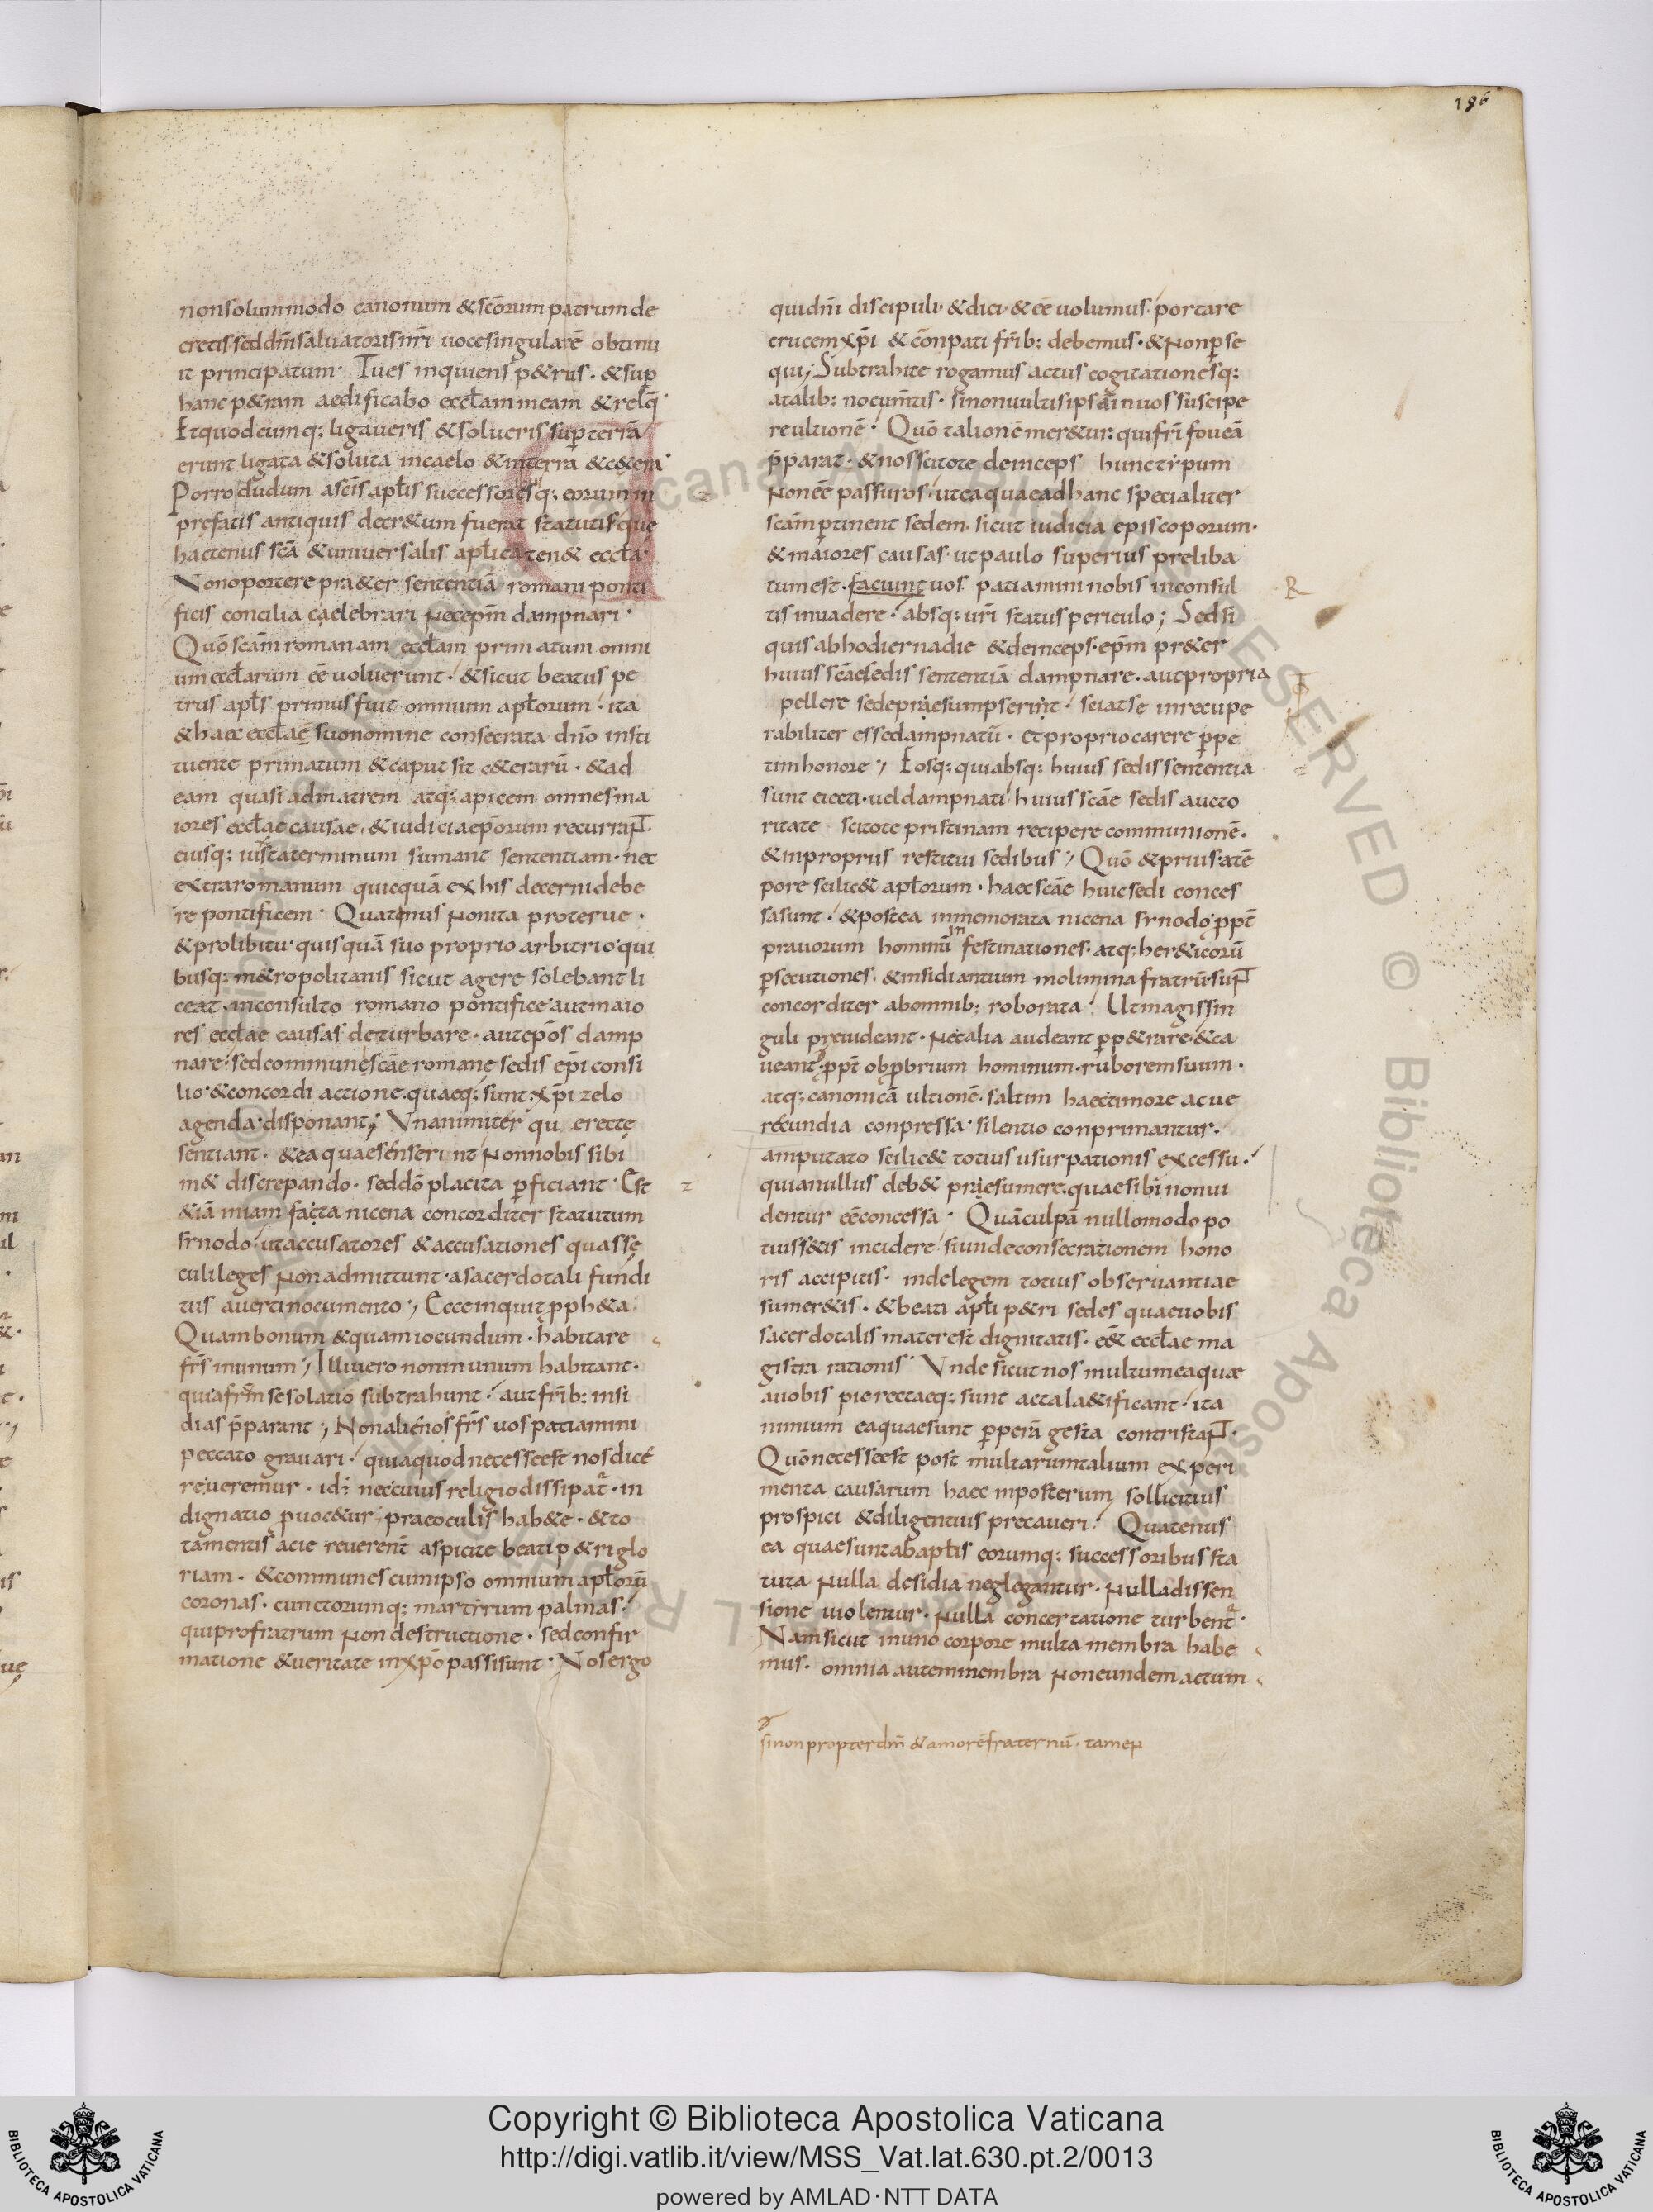 186
nonsolummodo canonum &sc̄orum patrum de
cretis sed dn̄i saluatoris nr̄i uoce singularē obtinu
it principatum· Tu es inquiens p&rus· &sup̱
hanc p&ram aedificabo eccl̄am meam &relq̄·
Et quodcumq; ligaueris &solueris sup̱ terrā
erunt ligata &soluta incaelo &interra &c&era·
Porro dudum asc̄is apl̄is successoresq; eorum in
prefatis antiquis decr&um fuerat statutis que
hactenus sc̄a &uniuersalis apl̄ica ten& eccl̄a·
Non oportere pra&er sententiā romani ponti
ficis concilia caelebrari Nec ep̄m dampnari·
Quō sc̄am romanam eccl̄am primatum omni
um eccl̄arum eē uoluerunt· &sicut beatus pe
trus apl̄s primus fuit omnium apl̄orum· ita
&haec eccl̄ae suo nomine consecrata dn̄o insti
tuente primatum &caput sit c&erarū· &ad
eam quasi admatrem atq; apicem omnes ma
iores eccl̄ae causae· &iudicia ep̄orum recurraɴt·
eiusq; iusta terminum sumant sententiam· nec
extra romanum quicquā ex his decerni debe
re pontificem· Quatenus Non ita proterue·
&prolibitu· quisquā suo proprio arbitrio· qui
busq; m&ropolitanis sicut agere solebant li
ceat· inconsulto romano pontifice· aut maio
res eccl̄ae causas deturbare· aut ep̄os damp
nare· sed communescāe romane sedis ep̄i consi
lio· &concordi actione· quaeq; sunt xp̄i zelo
agenda· disponant; Unanimiter qu erecte
sentiant· &ea quae senseri nt Non nobis sibi
m& discrepando· sed dō placita p̱ficiant· Est
&iā in iam facta nicena concorditer statutum
synodo· ut accusatores &accusationes quas se
culi leges Non admittunt· a sacerdotali fundi
tus auerti nocumento; Ecce inquit p̱ ph&a·
Quam bonum &quam iocundum· habitare
fr̄s inunum; Illi uero non inunum habitant·
quia fr̄m se solatio subtrahunt· aut fr̄ib; insi
dias p̄parant; Non alienos fr̄s uos patiamini
peccato grauari· quia quod necesse est nos dicē
reueremur· id· nec cuius religio dissipat̄· in
dignatio ꝓuoc&ur· prae oculis hab&e· &to
ta mentis acie reuerent̄ aspicite beati p&ri glo
riam· &communes cum ipso omnium apl̄orū
coronas· cunctorumq; martyrum palmas·
qui pro fratrum Non destructione· sed confir
matione &ueritate inxp̄o passi sunt· Nos ergo
qui dn̄i discipuli· &dici· &eē uolumus· portare
crucem xp̄i &conpati fr̄ib; debemus· &Non p̱se
qui; Subtrahite rogamus actus cogitationesq;
a talib; nocum̄tis· si non uultis ipsā in uos suscipe
re ultionē· Quō talionē mer&ur; qui fr̄i foueā
p̄parat· &nos scitote deinceps hunc typum
Non eē passuros· ut ea quae ad hanc specialiter
sc̄am p̱tinent sedem· sicut iudicia episcoporum·
&maiores causas· ut paulo superius preliba
tum est· faciunt uos patiamini nobis inconsul
R
tis inuadere· absq; ur̄i status periculo; Sed si
quis ab hodierna die &deinceps· ep̄m pr&er
huius sc̄ae sedis sententiā dampnare· aut propria
pellere sede praesumpserint· sciat se inrecupe
rabiliter esse dampnatū· et proprio carere p̱pe
tim honore; Eosq; qui absq; huius sedis sententia
sunt eiecti· uel dampnati huius sc̄ae sedis aucto
ritate scitote pristinam recipere communionē·
&in propriis restitui sedibus; Quō &prius atē
pore scilic& apl̄orum· haec sc̄ae huic sedi conces
sa sunt· &postea inmemorata nicena synodo· ꝓpt̄
prauorum hominū in festinationes· atq; her&icorū
p̱secutiones· &insidiantium molimina fratrū· suɴt
concorditer ab omnib; roborata· Ut magis sin
guli preuideant· Ne talia audeant p̱p&rare· &ca
ueant· ꝓpt̄ obꝓbrium hominum· ruborem suum·
atq; canonicā ultionē· saltim haec timore ac ue
recundia conpressa· silentio conprimantur·
amputato scilic& totius usurpationis excessu·
quia nullus deb& praesumere· quae sibi non ui
dentur eē concessa· Quā culpā nullomodo po
tuiss&is incidere· si unde consecrationem hono
ris accipitis· inde legem totius obseruantiae
sumer&is· &beati apl̄i p&ri sedes quae uobis
sacerdotalis mater est dignitatis· eē& eccl̄ae ma
gistra rationis· Unde sicut nos multum ea quae
a uobis pie rectaeq; sunt acta la&ificant· ita
nimium ea quae sunt p̱perā gesta contristaɴt·
Quō necesse est post multarum talium experi
menta causarum haec inposterum sollicitius
prospici &diligentius precaueri· Quatenus
ea quae sunt ab apl̄is eorumq; successoribus sta
tuta Nulla desidia neglegantur· Nulla dissen
sione uiolentur· Nulla concertatione turbent̄·
Nam sicut inuno corpore multa membra habe
mus· omnia autem membra Non eundem actum
si non propter dm̄ &amorē fraternū· tamen
Copyright © Biblioteca Apostolica Vaticana
http://digi.vatlib.it/view/MSS_Vat.lat.630.pt.2/0013
powered by AMLAD·NTT DATA
BIBLIOTECA APOSTOLICA VATICANA
BIBLIOTECA APOSTOLICA VATICANA